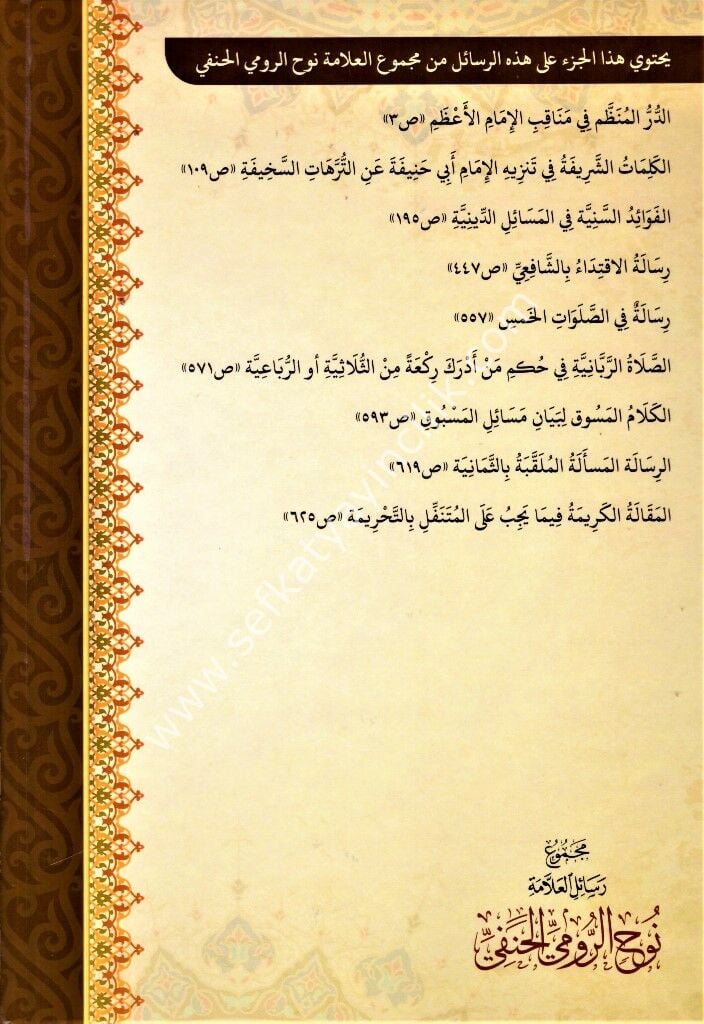 يحتوي هذا الجزء على هذه الرسائل من مجموع العلامة نوح الرومي الحنفي
الدُّرُّ المُنَظَّم فِي مَنَاقِبِ الإِمَامِ الأَعْظَمِ «ص٣»
الكَلِمَاتُ الشَّرِيفَةُ فِي تَنزِيهِ الإِمَامِ أَبِي حَنِيفَةَ عَنِ التُّرَّهَاتِ السَّخِيفَةِ «ص١٠٩»
الفَوَائِدُ السَّنِيَّة فِي المَسَائِلِ الدِّينِيَّةِ «ص١٩٥»
رِسَالَةُ الاقتِدَاءُ بِالشَّافِعِيِّ «ص٤٤٧»
رِسَالَةٌ فِي الصَّلَوَاتِ الخَمسِ «٥٥٧»
الصَّلَاةُ الرَّبَّانِيَّةِ فِي حُكمِ مَنْ أَدْرَكَ رَكْعَةً مِنْ الثُّلَاثِيَّةِ أو الرُّبَاعِيَّة «ص٥٧١»
الكَلَامُ المَسُوق لِبَيَانِ مَسَائِلِ المَسْبُوقِ «ص٥٩٣»
الرِسَالَة المَسأَلَةُ المُلَقَّبَةُ بِالثَّمَانِيَة «ص٦١٩»
المَقَالَةُ الكَرِيمَةُ فِيمَا يَجِبُ عَلَى المُتَنَفِّلِ بِالتَّحْرِيمَة «ص٦٢٥»
www.sefkatyayincilik.com
مَجْمُوعُ
رَسَائِلِ العَلَّامَةِ
نُوحِ الرُّومِيِّ الحَنَفِيِّ